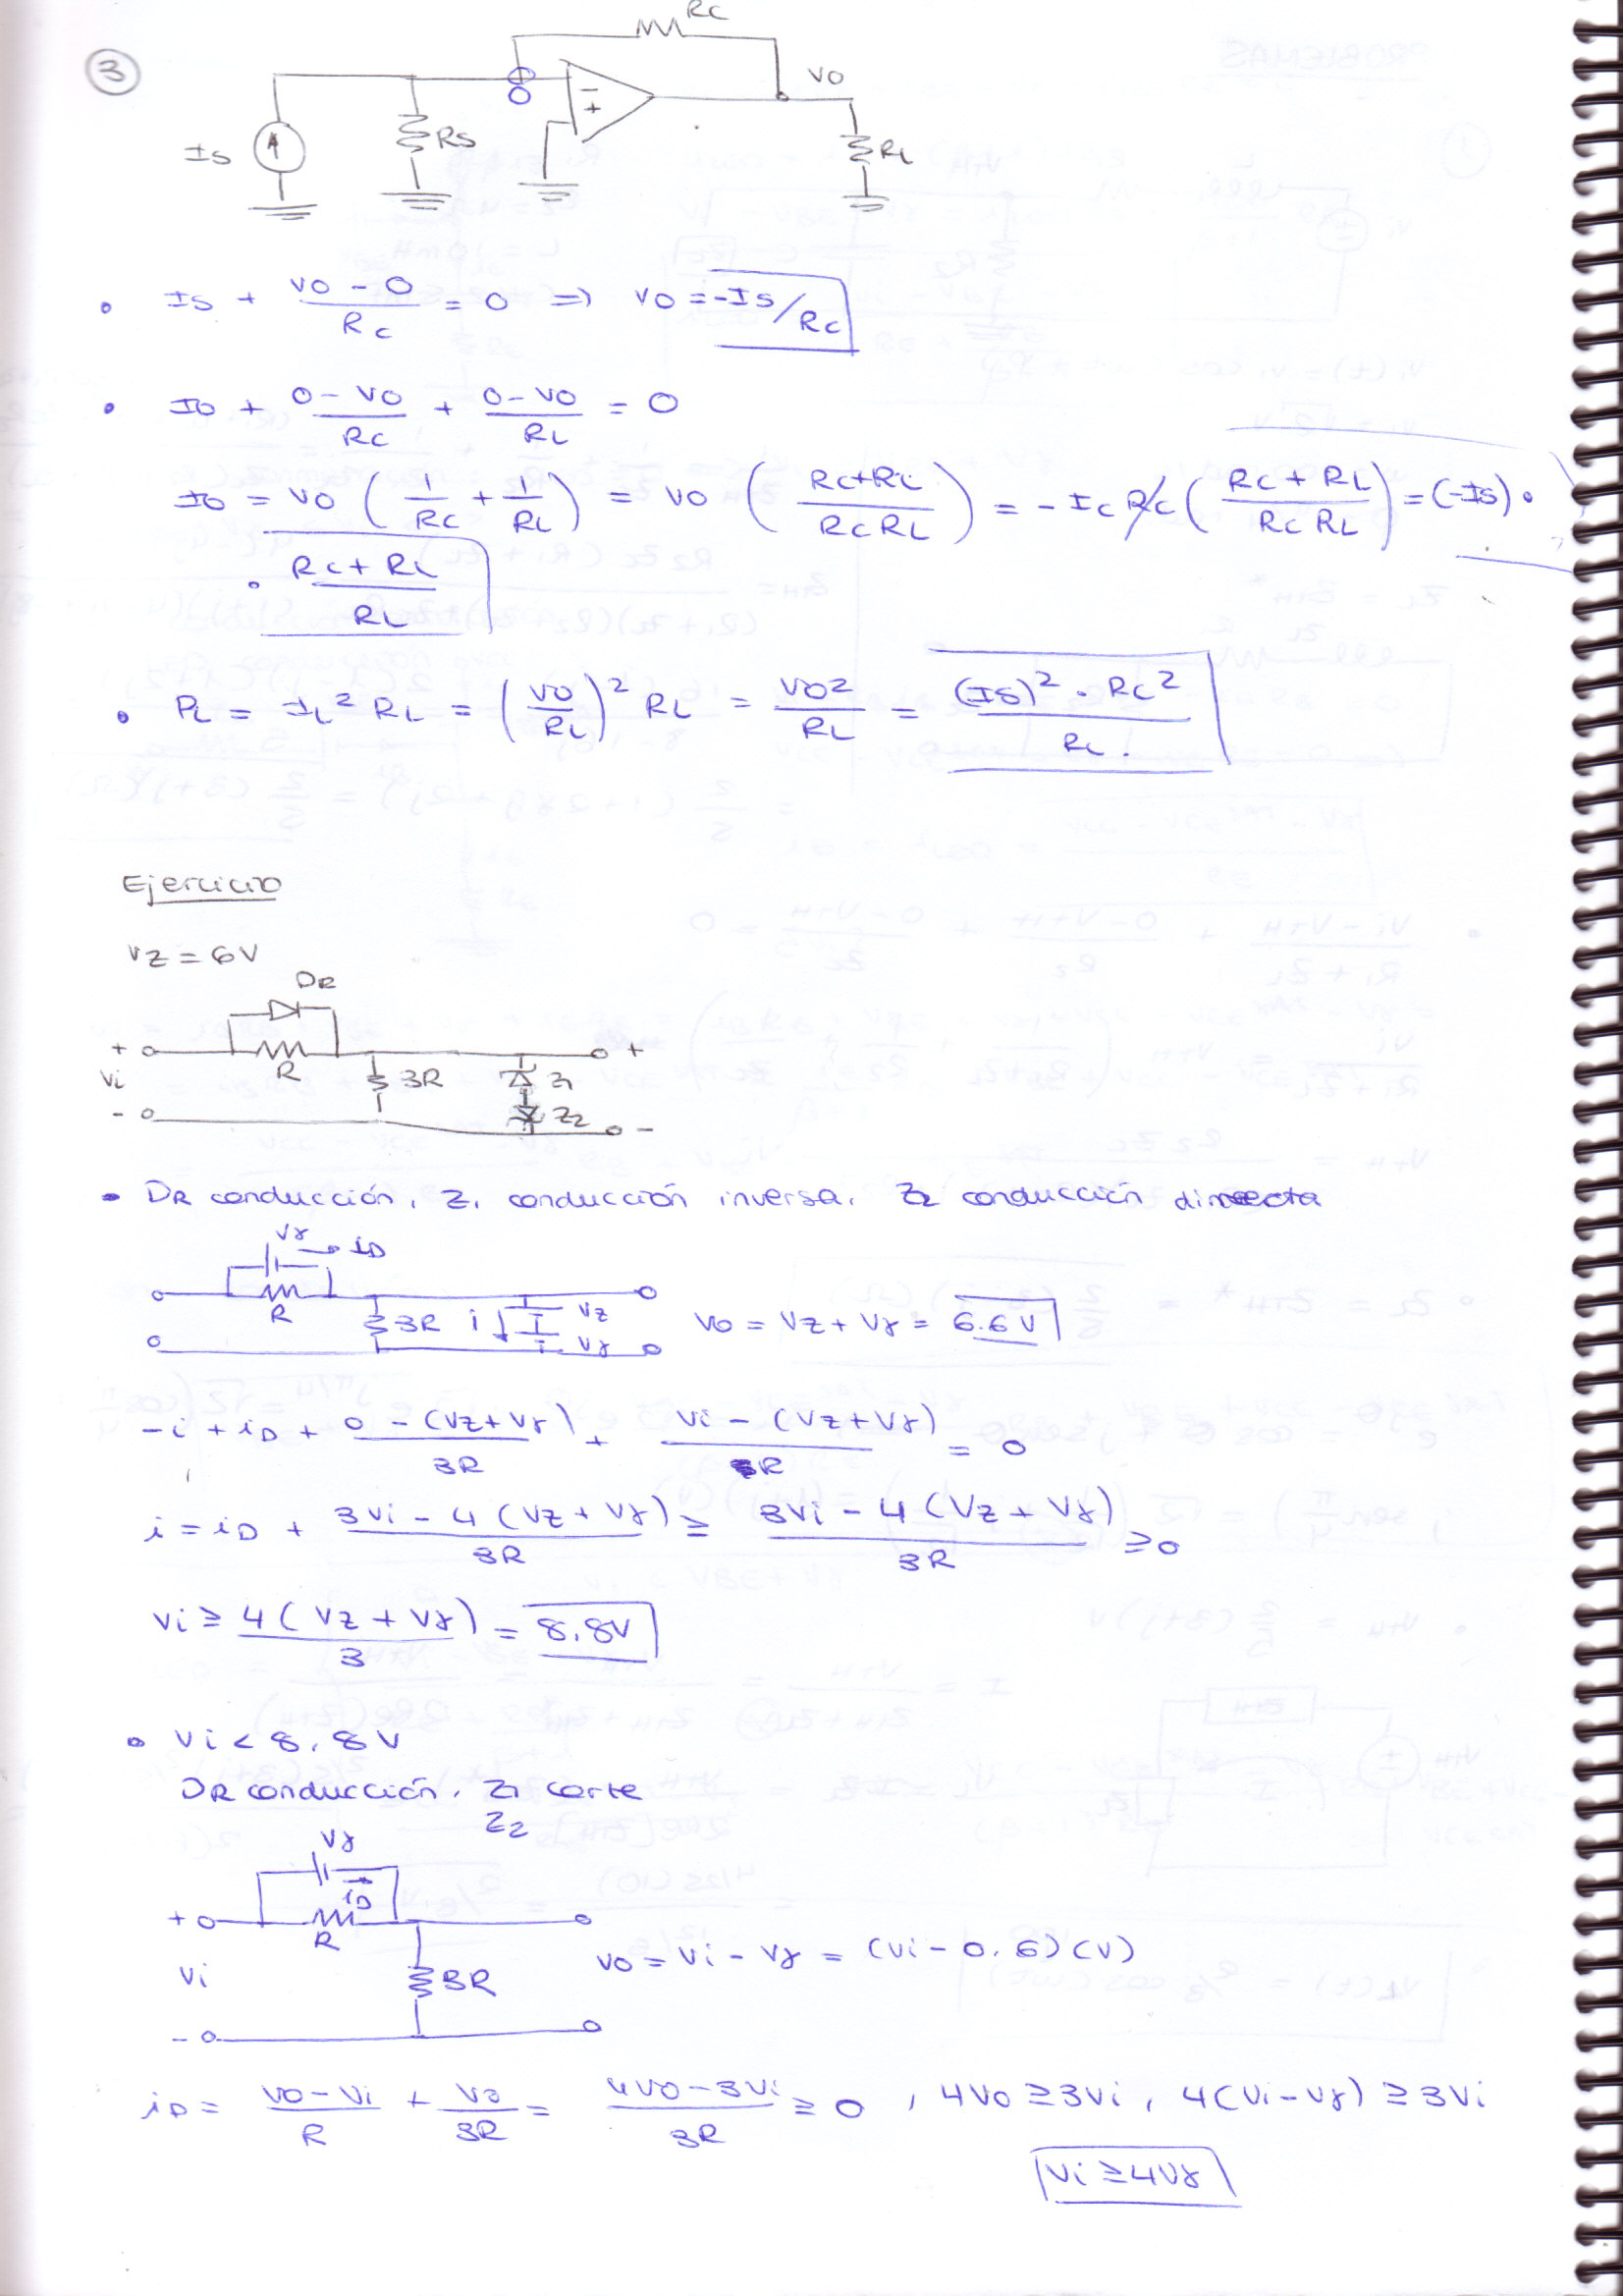 3
Rc
Is
Rs
0
-
+
Vo
RL
• Is + (Vo - 0)/Rc = 0 => Vo = -Is/Rc
• Io + (0 - Vo)/Rc + (0 - Vo)/RL = 0
Io = Vo (1/Rc + 1/RL) = Vo ((Rc+RL)/(Rc RL)) = - Ic Rc ((Rc + RL)/(Rc RL)) = (-Is) •
• (Rc + RL)/RL
• PL = IL² RL = (Vo/RL)² RL = Vo²/RL = ((Is)² • Rc²)/RL
Ejercicio
Vz = 6V
DR
+ Vi -
R
3R
Z1
Z2
+
-
• DR conducción, Z1 conducción inversa. Z2 conducción directa
Vγ → iD
R
3R
i
Vz
Vγ
Vo = Vz + Vγ = 6.6 V
-i + iD + (0 - (Vz + Vγ))/3R + (Vi - (Vz + Vγ))/R = 0
i = iD + (3Vi - 4 (Vz + Vγ))/3R ≥ (3Vi - 4 (Vz + Vγ))/3R ≥ 0
Vi ≥ 4 (Vz + Vγ)/3 = 8,8V
• Vi < 8,8V
DR conducción, Z1 corte
Z2
Vγ
iD
+
R
Vi
3R
-
Vo = Vi - Vγ = (Vi - 0.6) (V)
iD = (Vo - Vi)/R + Vo/3R = (4Vo - 3Vi)/3R ≥ 0 , 4Vo ≥ 3Vi , 4(Vi - Vγ) ≥ 3Vi
Vi ≥ 4Vγ